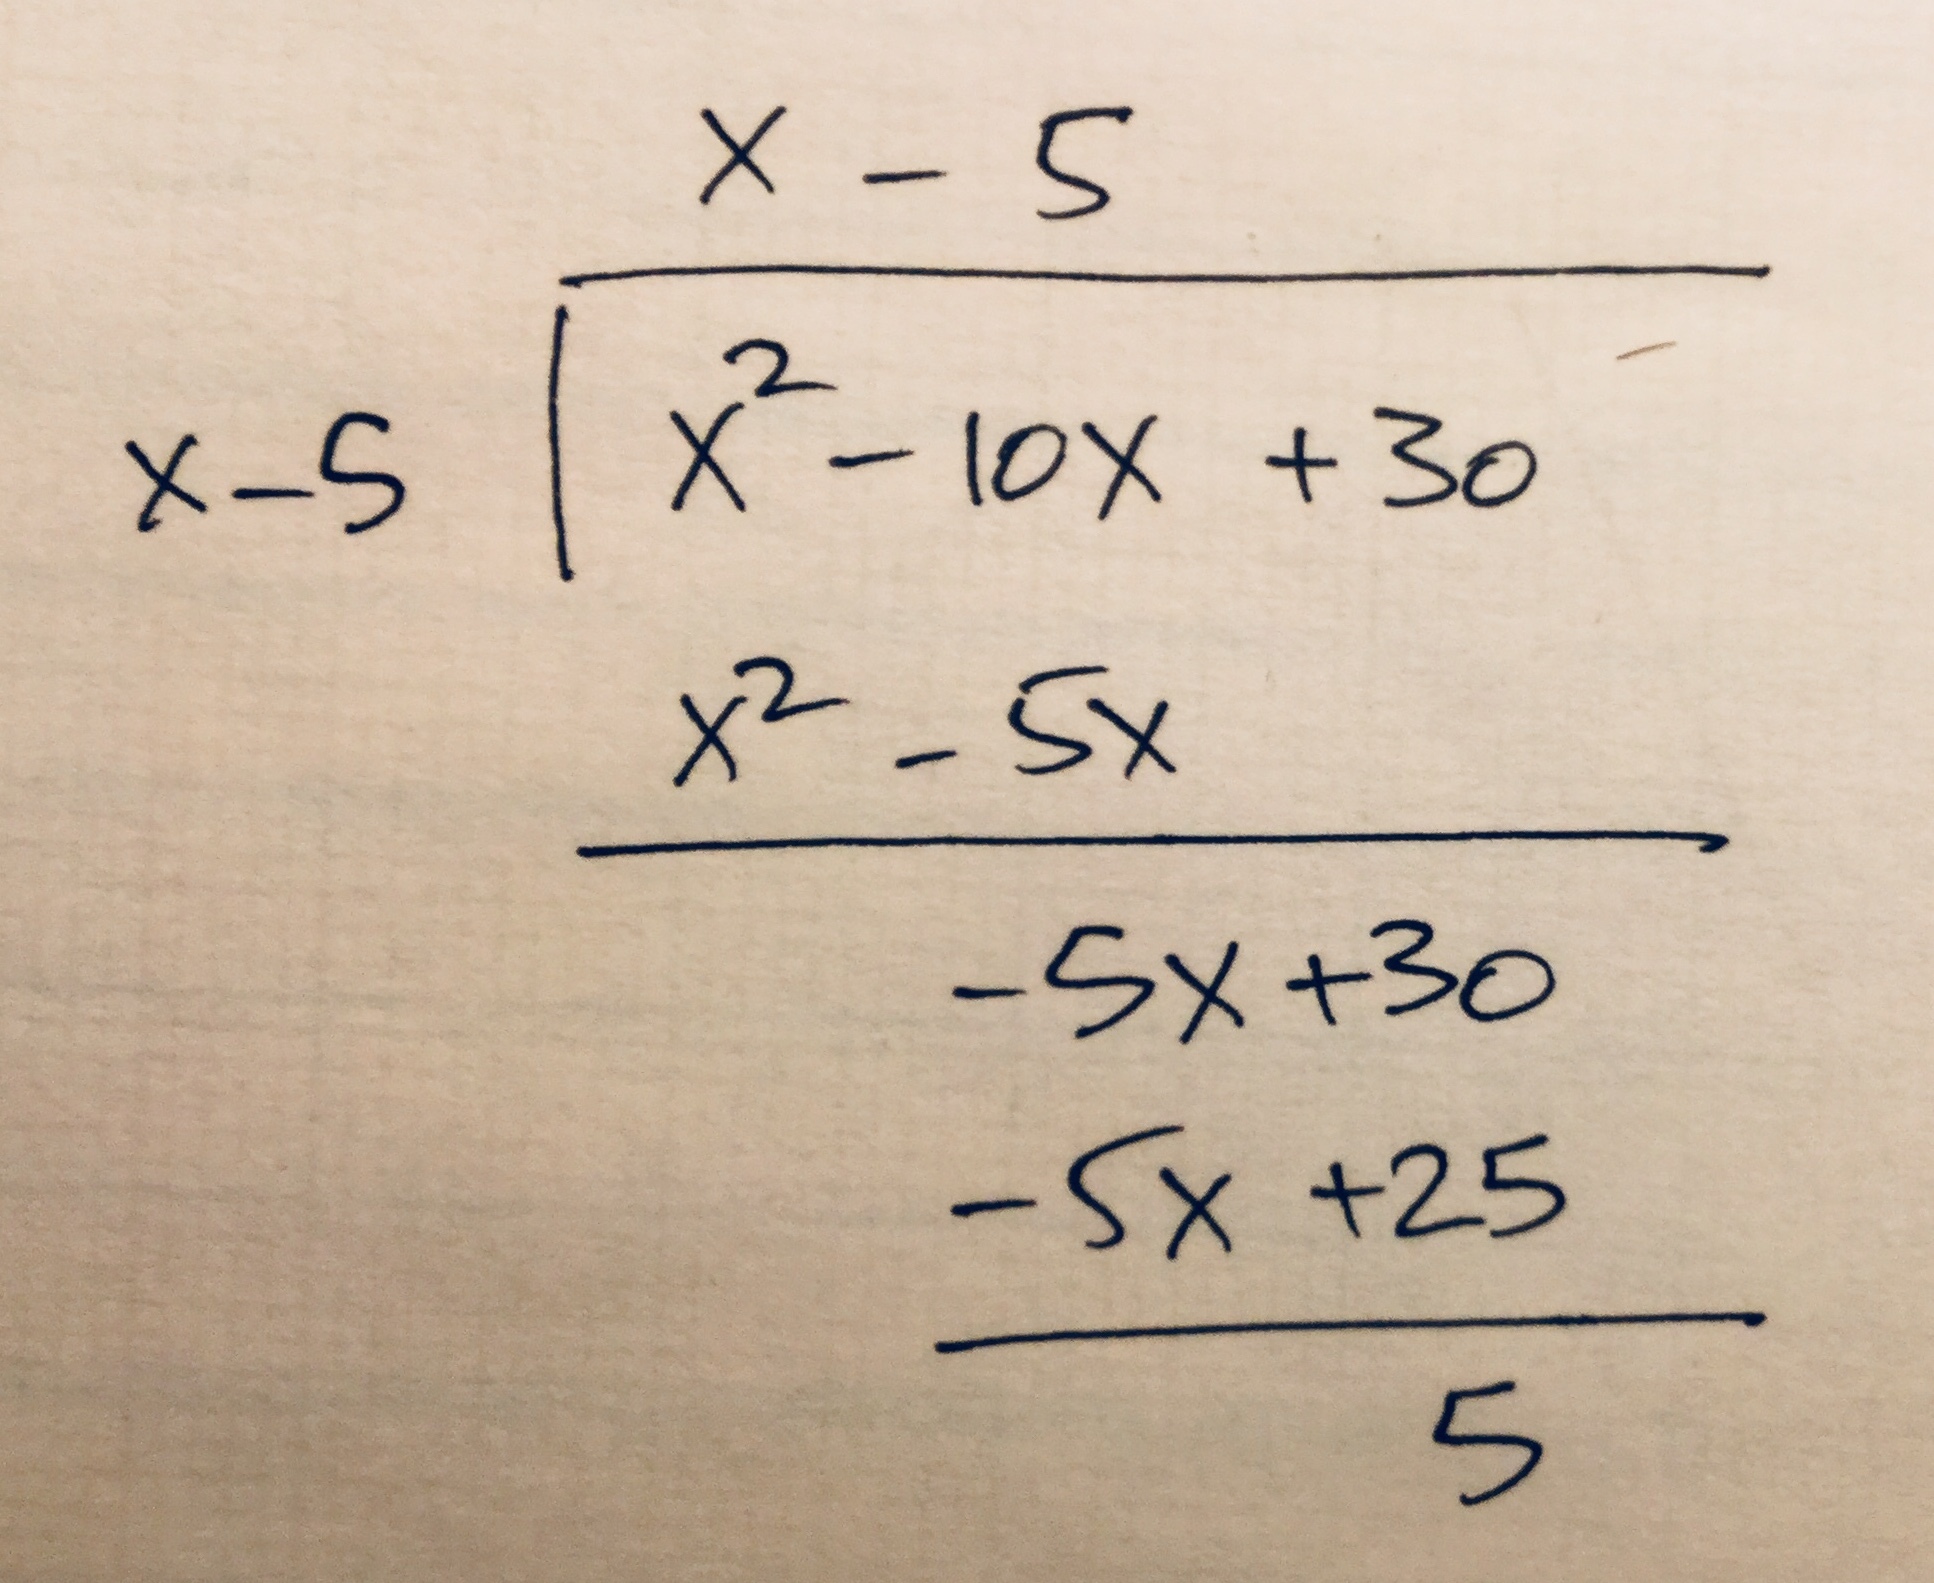 x - 5
x-5 x² - 10x + 30
x² - 5x
-5x +30
-5x +25
5